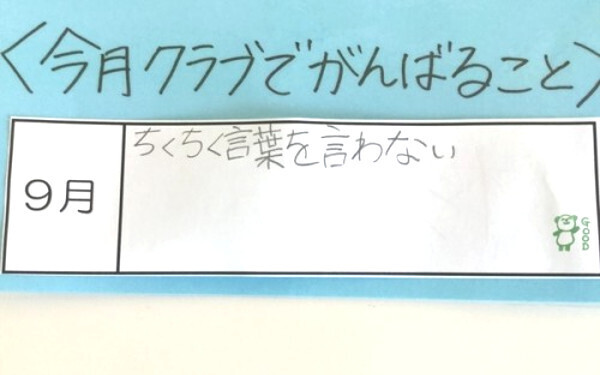 〈今月クラブでがんばること〉
9月
ちくちく言葉を言わない
GOOD